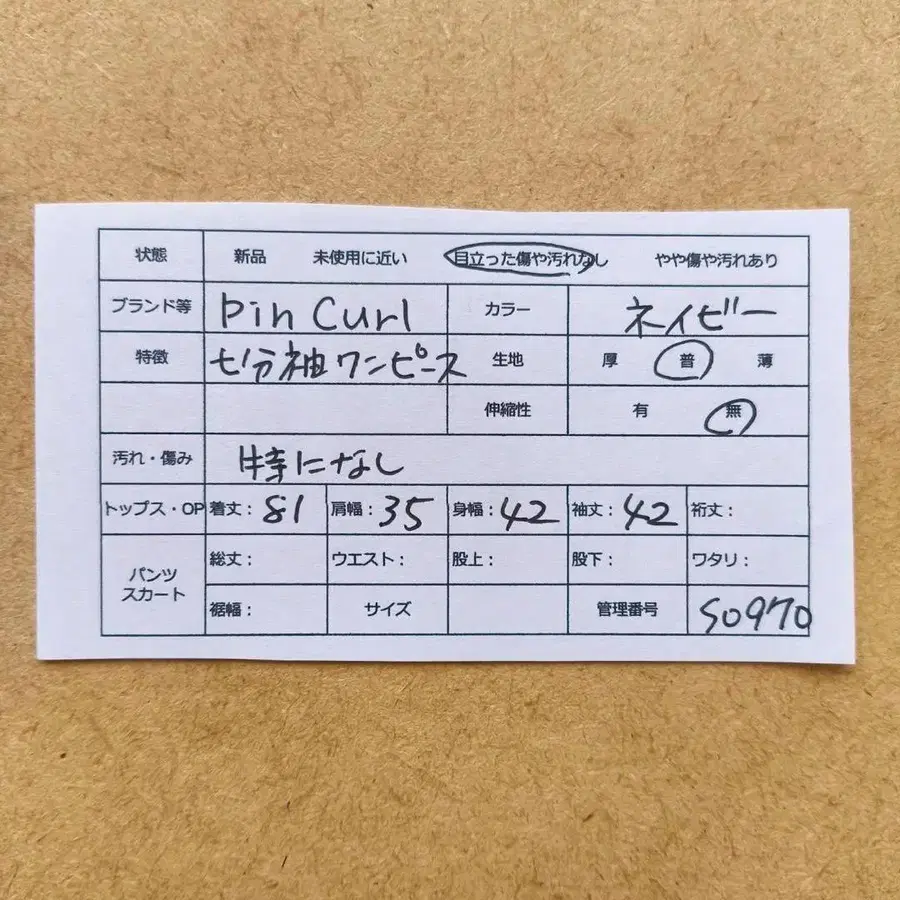 状態 新品 未使用に近い 目立った傷や汚れなし やや傷や汚れあり
ブランド等 Pin Curl カラー ネイビー
特徴 七分袖ワンピース 生地 厚 普 薄
伸縮性 有 無
汚れ・傷み 特になし
トップス・OP 着丈：81 肩幅：35 身幅：42 袖丈：42 裄丈：
パンツ 総丈： ウエスト： 股上： 股下： ワタリ：
スカート 裾幅： サイズ 管理番号 S0970